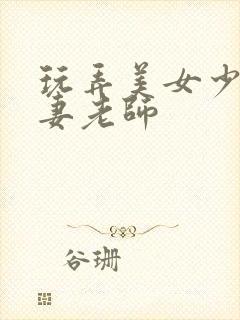 玩弄美女少
妻老師
谷珊